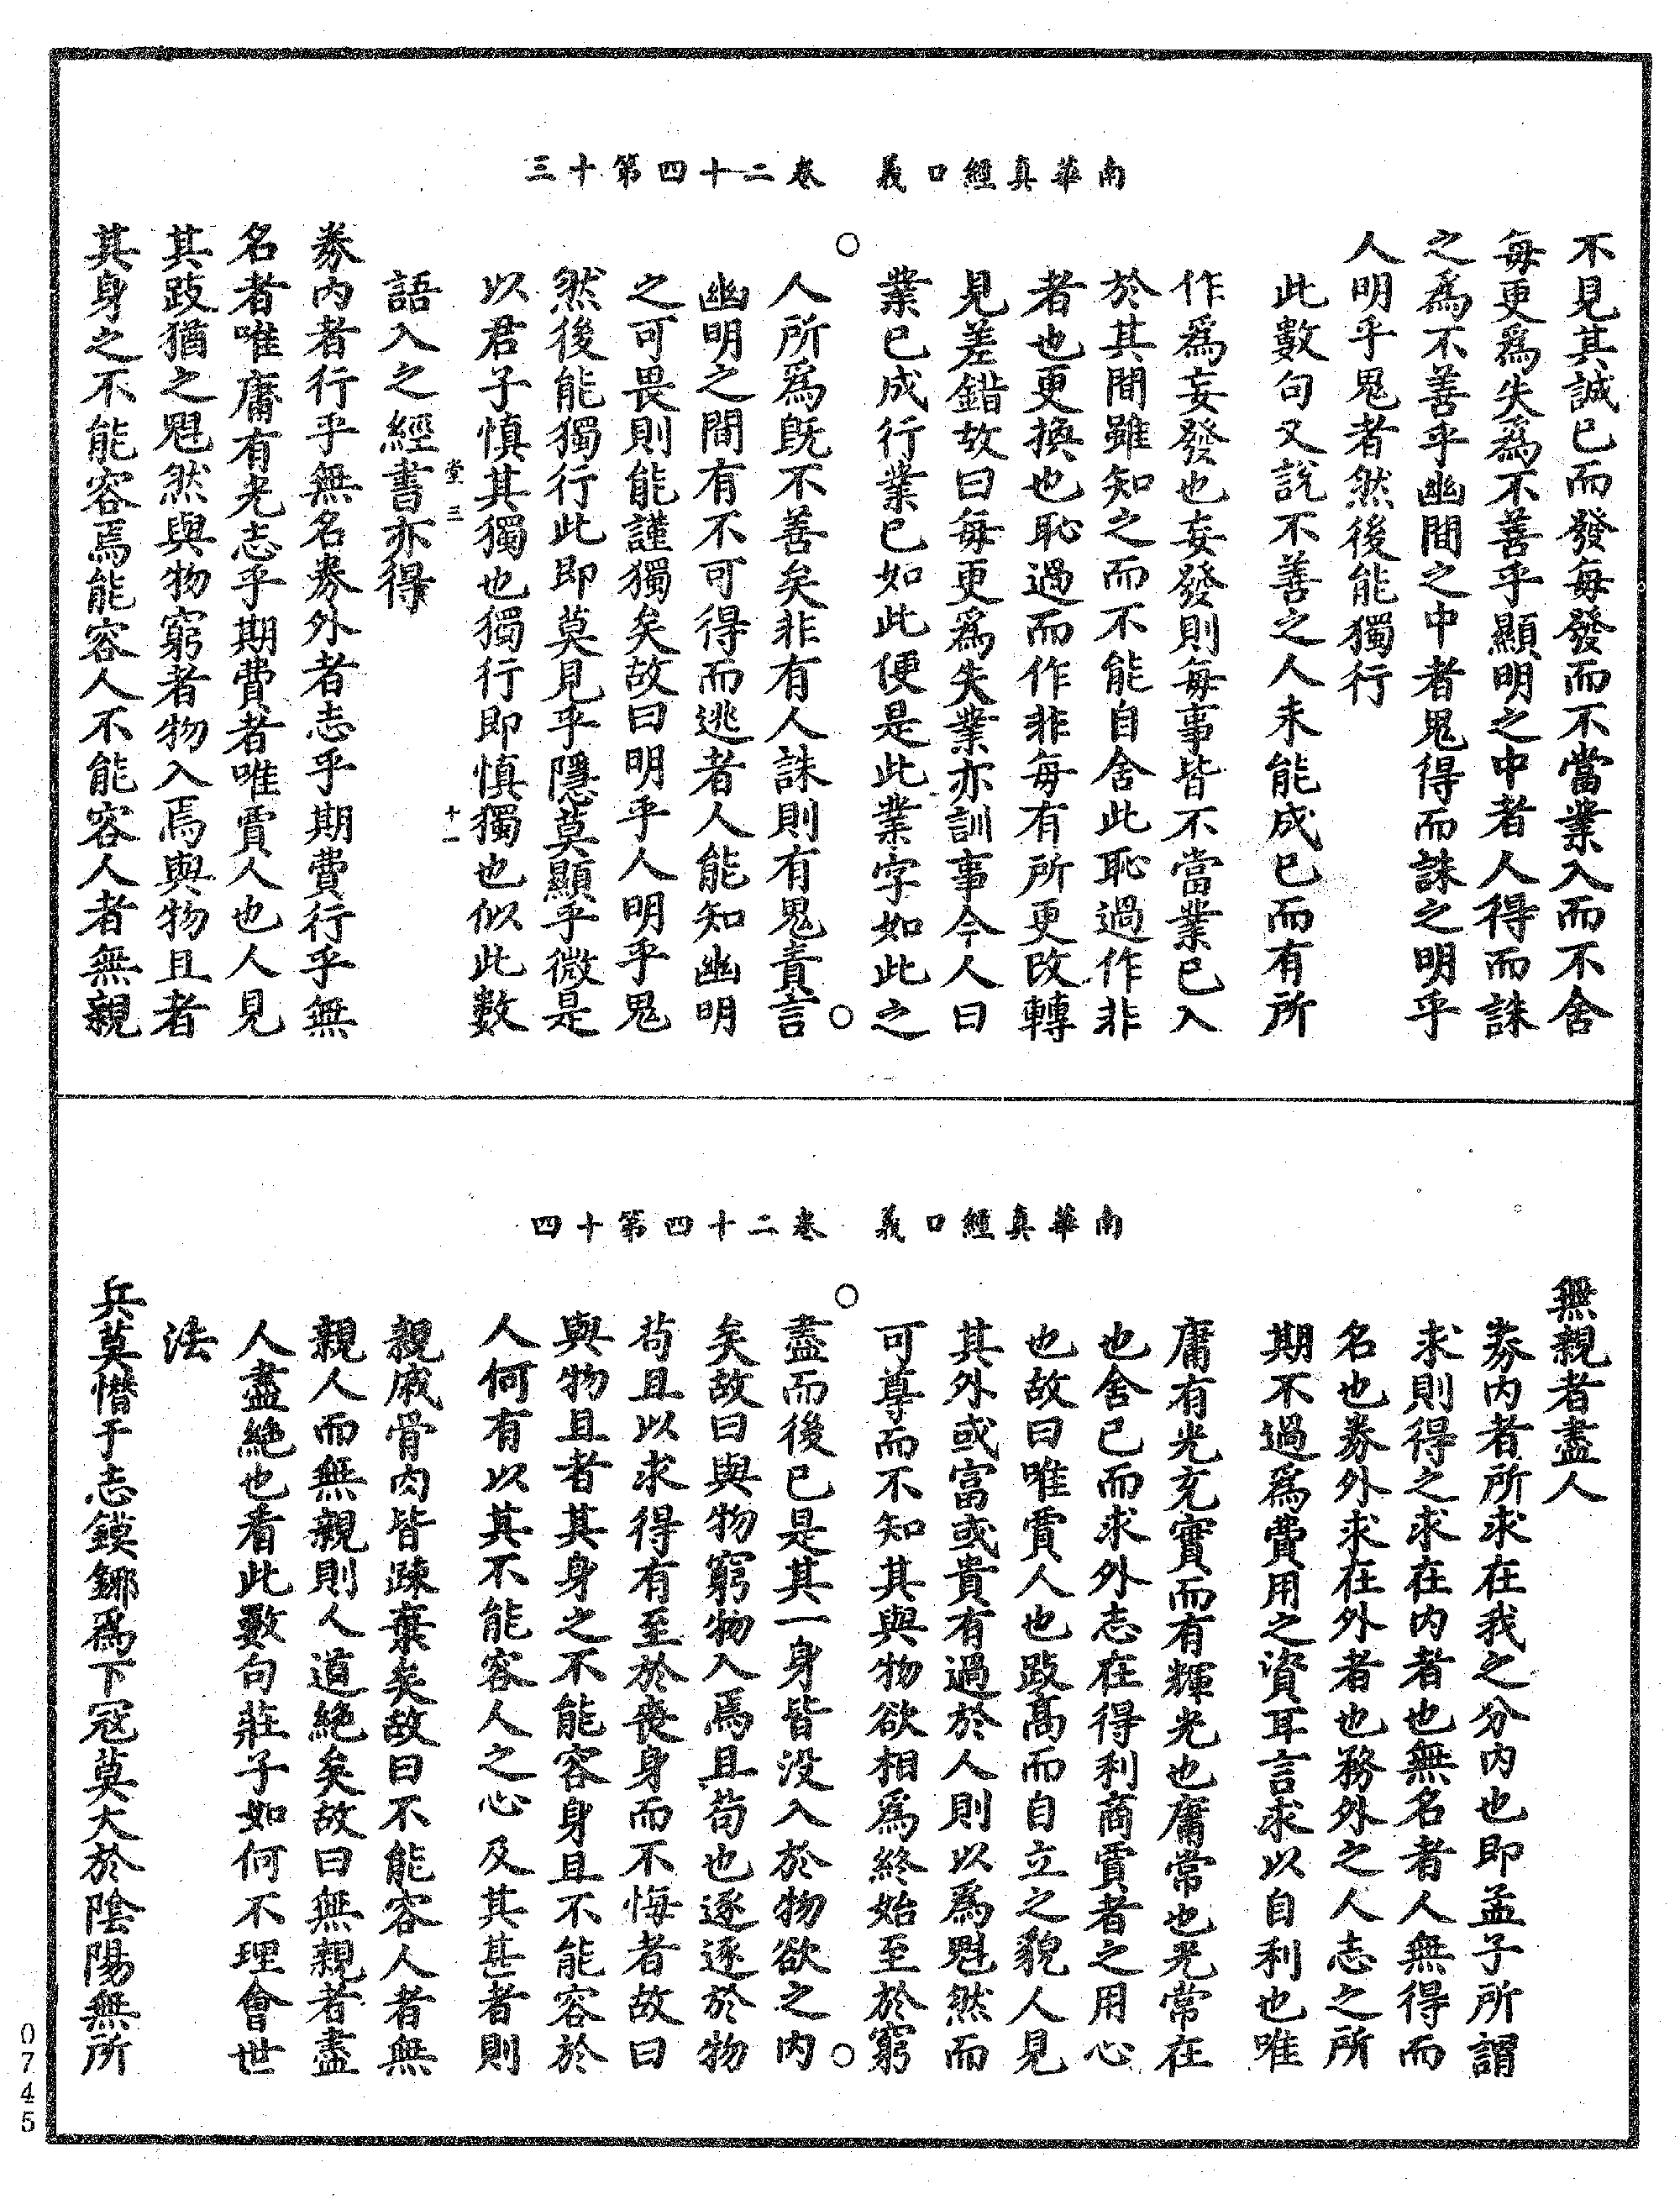 南華真經口義　卷二十四第十三
不見其誠已而發每發而不當業入而不舍
每更爲失爲不善乎顯明之中者人得而誅
之爲不善乎幽間之中者鬼得而誅之明乎
人明乎鬼者然後能獨行
此數句又說不善之人未能成已而有所
作爲妄發也妄發則每事皆不當業已入
於其間雖知之而不能自舍此恥過作非
者也更換也恥過而作非每有所更改轉
見差錯故曰每更爲失業亦訓事今人曰
業已成行業已如此便是此業字如此之
人所爲旣不善矣非有人誅則有鬼責言
幽明之間有不可得而逃者人能知幽明
之可畏則能謹獨矣故曰明乎人明乎鬼
然後能獨行此即莫見乎隱莫顯乎微是
以君子慎其獨也獨行即慎獨也似此數
堂三　十一
語入之經書亦得
券內者行乎無名券外者志乎期費行乎無
名者唯庸有光志乎期費者唯賈人也人見
其跂猶之魁然與物窮者物入焉與物且者
其身之不能容焉能容人不能容人者無親
南華真經口義　卷二十四第十四
無親者盡人
券內者所求在我之分內也即孟子所謂
求則得之求在內者也無名者人無得而
名也券外求在外者也務外之人志之所
期不過爲費用之資耳言求以自利也唯
庸有光充實而有輝光也庸常也光常在
也舍已而求外志在得利商賈者之用心
也故曰唯賈人也跂高而自立之貌人見
其外或富或貴有過於人則以爲魁然而
可尊而不知其與物欲相爲終始至於窮
盡而後已是其一身皆没入於物欲之內
矣故曰與物窮物入焉且苟也逐逐於物
苟且以求得有至於喪身而不悔者故曰
與物且者其身之不能容身且不能容於
人何有以其不能容人之心及其甚者則
親戚骨肉皆疎棄矣故曰不能容人者無
親人而無親則人道絶矣故曰無親者盡
人盡絶也看此數句莊子如何不理會世
法
兵莫憯于志鏌鋣爲下寇莫大於陰陽無所
0745